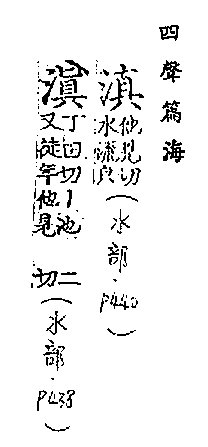 四聲篇海
滇他見切水流皃(水部.P440)
滇丁田切丨池又徒年他見二切(水部.P438)